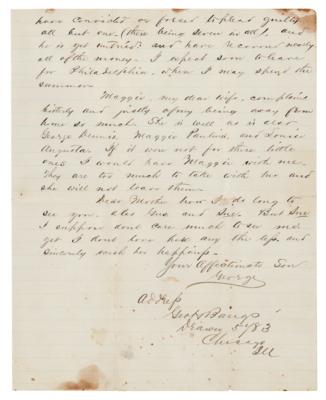 have convicted or forced to plead guilty
all but one (there being seven in all), and
he is get and have recovered nearly
all of the money. I expect soon to leave
for Philadelphia, where I may spend the
summer.
Maggie, my dear wife, complains
bitterly and justly of my being away from
home so much. She is well as is also
George Maggie and Louise
Augusta. If it were not for these little
ones I would have Maggie with me.
They are too much to take with her and
she will not leave them.
Dear Mother how I do long to
see you. Also Gus and Sue. But Sue
I suppose dont care much to see me
yet I dont love her any the less and
sincerely wish her happiness.
Your Affectionate Son
George
Address
Geo H Bangs
Drawer 5783
Chicago
Ill